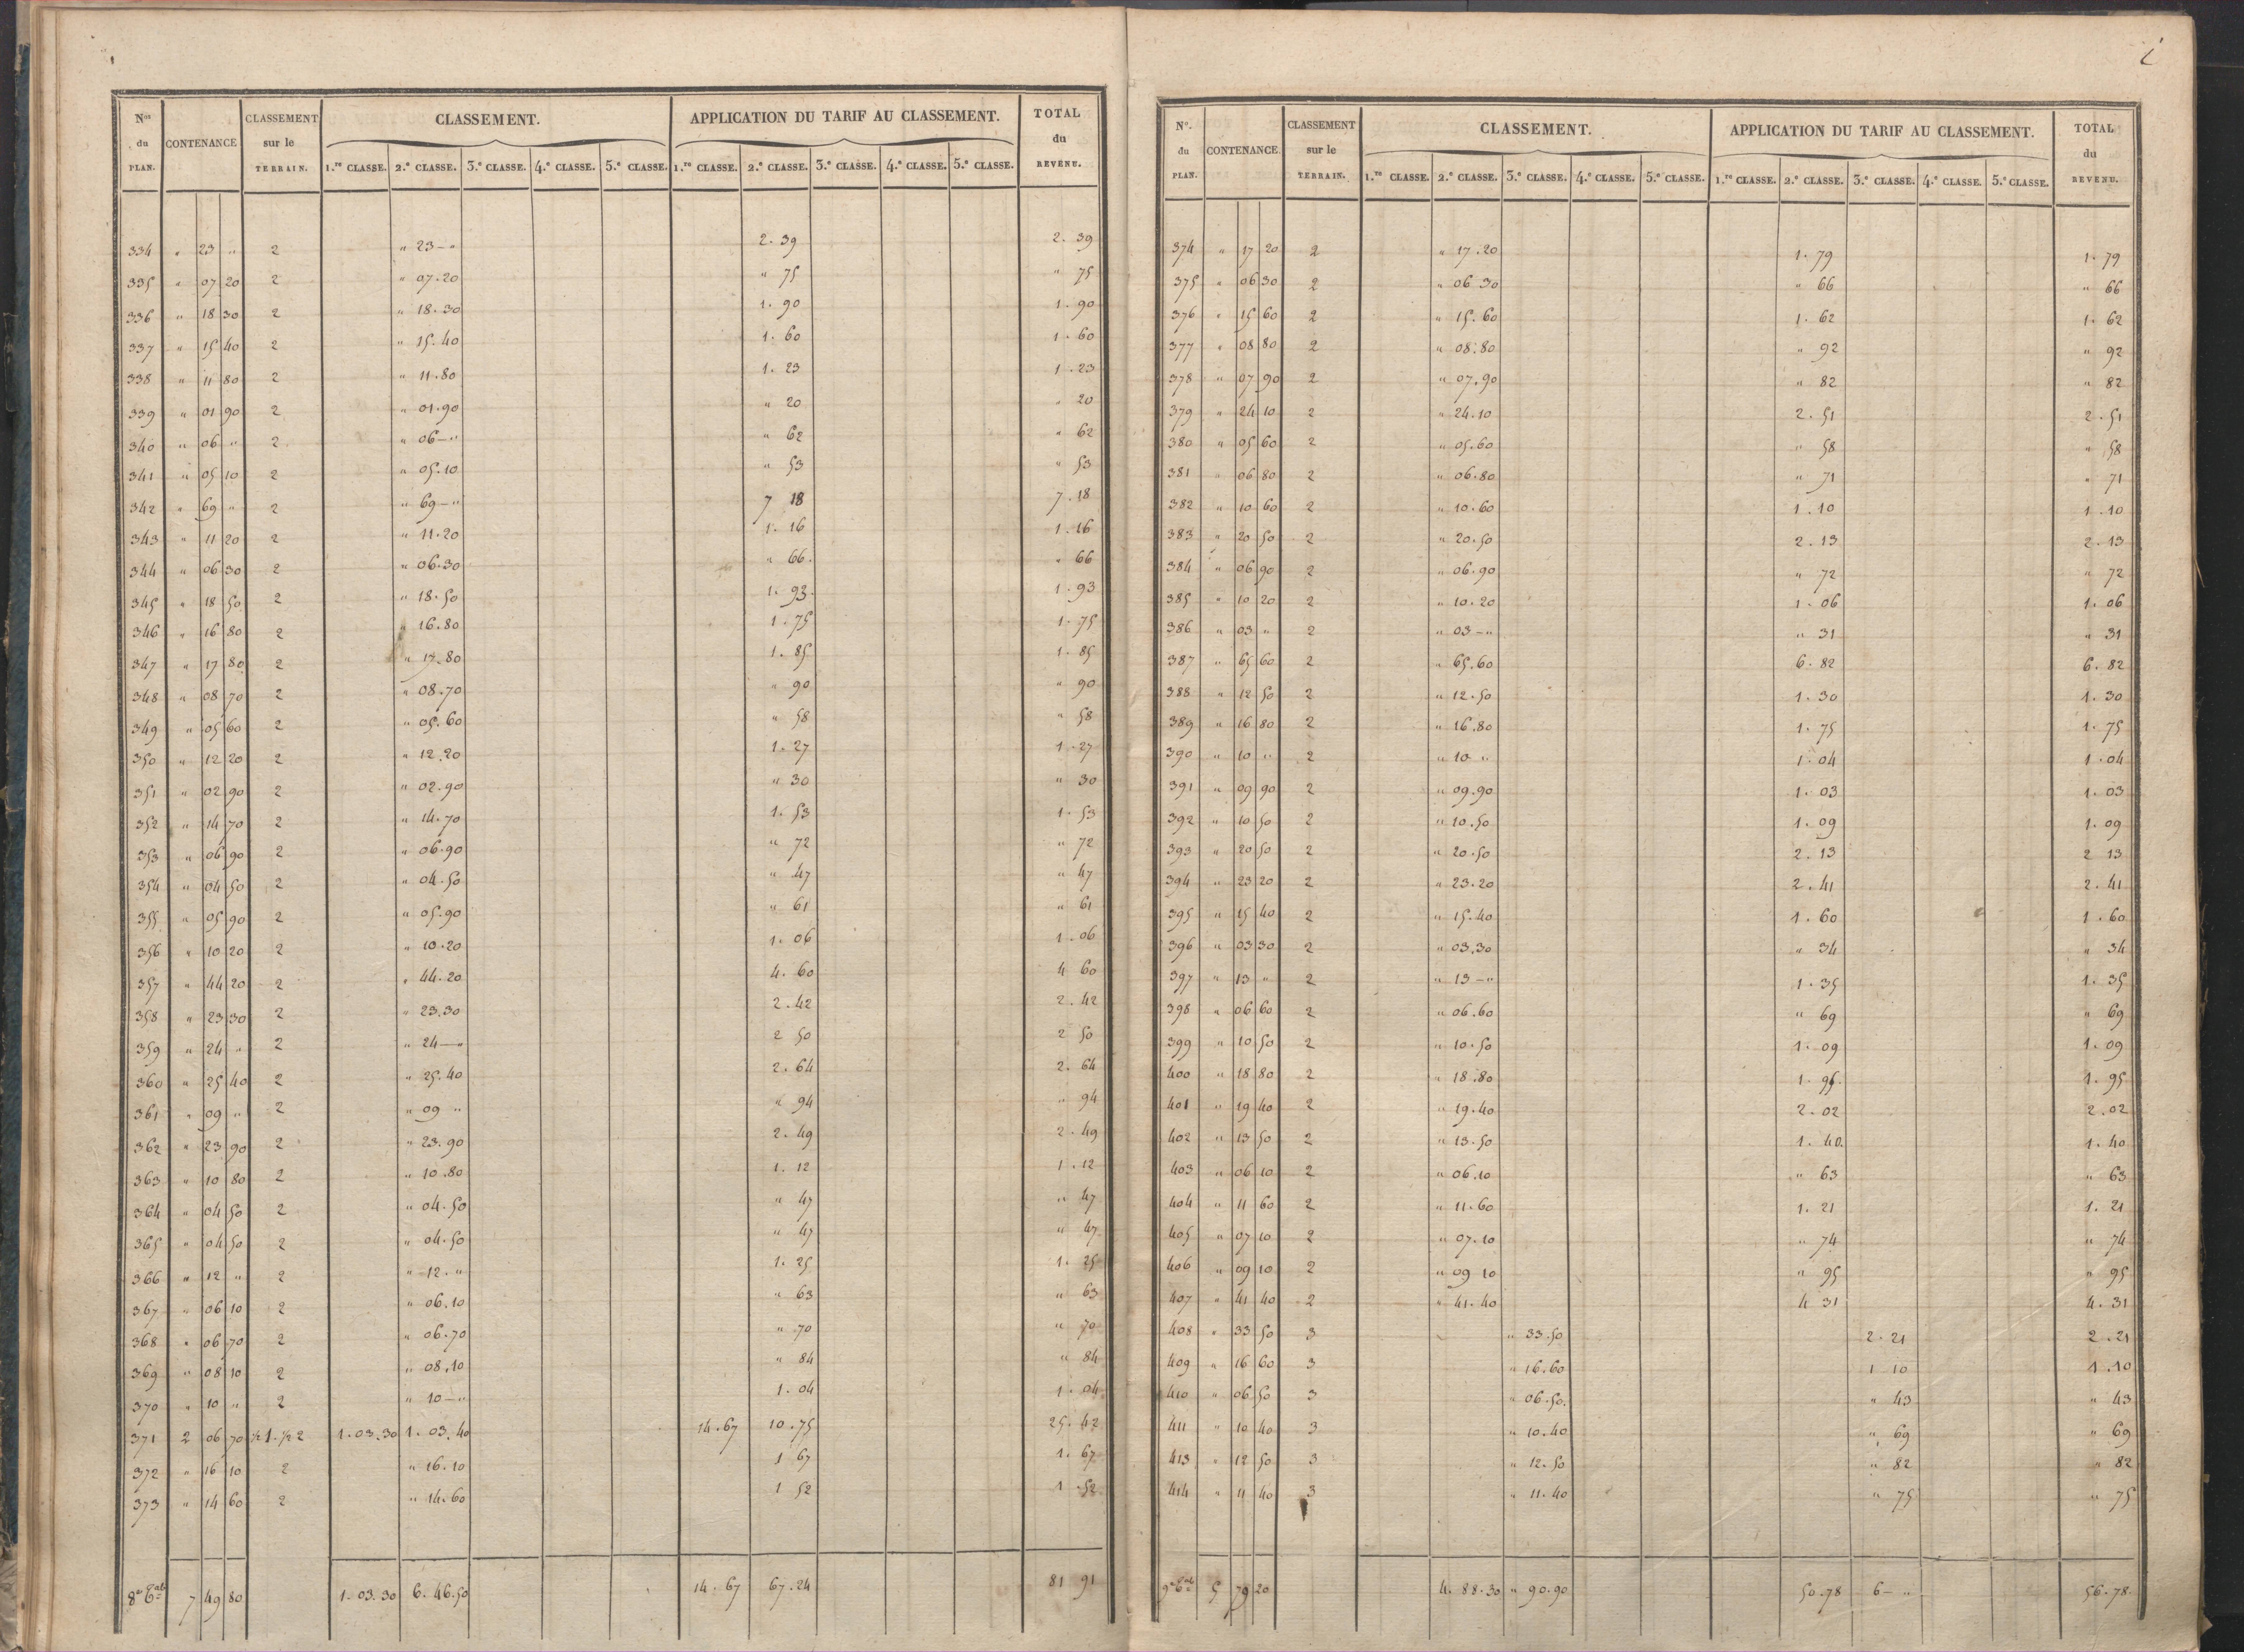 N.os du PLAN. CONTENANCE CLASSEMENT sur le TERRAIN. CLASSEMENT. APPLICATION DU TARIF AU CLASSEMENT. TOTAL du REVENU.
1.re CLASSE. 2.e CLASSE. 3.e CLASSE. 4.e CLASSE. 5.e CLASSE. 1.re CLASSE. 2.e CLASSE. 3.e CLASSE. 4.e CLASSE. 5.e CLASSE.
334 " 23 " 2 " 23 - " 2. 39 2. 39
335 " 07 20 2 " 07.20 " 75 " 75
336 " 18 30 2 " 18.30 1. 90 1. 90
337 " 15 40 2 " 15.40 1. 60 1. 60
338 " 11 80 2 " 11.80 1. 23 1. 23
339 " 01 90 2 " 01.90 " 20 " 20
340 " 06 " 2 " 06 - " " 62 " 62
341 " 05 10 2 " 05.10 " 53 " 53
342 " 69 " 2 " 69 - " 7 18 7. 18
343 " 11 20 2 " 11.20 1. 16 1. 16
344 " 06 30 2 " 06.30 " 66. " 66
345 " 18 50 2 " 18.50 1. 93. 1. 93
346 " 16 80 2 " 16.80 1. 75 1. 75
347 " 17 80 2 " 17.80 1. 85 1. 85
348 " 08 70 2 " 08.70 " 90 " 90
349 " 05 60 2 " 05.60 " 58 " 58
350 " 12 20 2 " 12.20 1. 27 1. 27
351 " 02 90 2 " 02.90 " 30 " 30
352 " 14 70 2 " 14.70 1. 53 1. 53
353 " 06 90 2 " 06.90 " 72 " 72
354 " 04 50 2 " 04.50 " 47 " 47
355 " 05 90 2 " 05.90 " 61 " 61
356 " 10 20 2 " 10.20 1. 06 1. 06
357 " 44 20 2 " 44.20 4. 60 4 60
358 " 23 30 2 " 23.30 2. 42 2. 42
359 " 24 " 2 " 24 - " 2 50 2 50
360 " 25 40 2 " 25.40 2. 64 2. 64
361 " 09 " 2 " 09 " " 94 " 94
362 " 23 90 2 " 23.90 2. 49 2. 49
363 " 10 80 2 " 10.80 1. 12 1. 12
364 " 04 50 2 " 04.50 " 47 " 47
365 " 04 50 2 " 04.50 " 47 " 47
366 " 12 " 2 " 12. " 1. 25 1. 25
367 " 06 10 2 " 06.10 " 63 " 63
368 " 06 70 2 " 06.70 " 70 " 70
369 " 08 10 2 " 08.10 " 84 " 84
370 " 10 " 2 " 10 - " 1. 04 1. 04
371 2 06 70 ½ 1. ½ 2 1.03.30 1. 03.40 14.67 10.75 25. 42
372 " 16 10 2 " 16.10 1 67 1. 67
373 " 14 60 2 " 14.60 1 52 1 52
7 49 80 1.03.30 6.46.50 14. 67 67.24 81 91
N.o du PLAN. CONTENANCE. CLASSEMENT sur le TERRAIN. CLASSEMENT. APPLICATION DU TARIF AU CLASSEMENT. TOTAL du REVENU.
1.re CLASSE. 2.e CLASSE. 3.e CLASSE. 4.e CLASSE. 5.e CLASSE. 1.re CLASSE. 2.e CLASSE. 3.e CLASSE. 4.e CLASSE. 5.e CLASSE.
374 " 17 20 2 " 17.20 1. 79 1. 79
375 " 06 30 2 " 06 30 " 66 " 66
376 " 15 60 2 " 15.60 1. 62 1. 62
377 " 08 80 2 " 08.80 " 92 " 92
378 " 07 90 2 " 07.90 " 82 " 82
379 " 24 10 2 " 24.10 2. 51 2. 51
380 " 05 60 2 " 05.60 " 58 " 58
381 " 06 80 2 " 06.80 " 71 " 71
382 " 10 60 2 " 10.60 1. 10 1. 10
383 " 20 50 2 " 20.50 2. 13 2. 13
384 " 06 90 2 " 06.90 " 72 " 72
385 " 10 20 2 " 10.20 1. 06 1. 06
386 " 03 " 2 " 03 - " " 31 " 31
387 " 65 60 2 " 65.60 6. 82 6. 82
388 " 12 50 2 " 12.50 1. 30 1. 30
389 " 16 80 2 " 16.80 1. 75 1. 75
390 " 10 " 2 " 10 " 1. 04 1. 04
391 " 09 90 2 " 09.90 1. 03 1. 03
392 " 10 50 2 " 10.50 1. 09 1. 09
393 " 20 50 2 " 20.50 2. 13 2 13
394 " 23 20 2 " 23.20 2. 41 2. 41
395 " 15 40 2 " 15.40 1. 60 1. 60
396 " 03 30 2 " 03.30 " 34 " 34
397 " 13 " 2 " 13 - " 1. 35 1. 35
398 " 06 60 2 " 06.60 " 69 " 69
399 " 10 50 2 " 10.50 1. 09 1. 09
400 " 18 80 2 " 18.80 1. 95. 1. 95
401 " 19 40 2 " 19.40 2. 02 2. 02
402 " 13 50 2 " 13.50 1. 40. 1. 40
403 " 06 10 2 " 06.10 " 63 " 63
404 " 11 60 2 " 11.60 1. 21 1. 21
405 " 07 10 2 " 07.10 " 74 " 74
406 " 09 10 2 " 09 10 " 95 " 95
407 " 41 40 2 " 41.40 4 31 4. 31
408 " 33 50 3 " 33.50 2. 21 2. 21
409 " 16 60 3 " 16.60 1 10 1. 10
410 " 06 50 3 " 06.50. " 43 " 43
411 " 10 40 3 " 10.40 " 69 " 69
413 " 12 50 3 " 12.50 " 82 " 82
414 " 11 40 3 " 11.40 " 75 " 75
5 79 20 4. 88.30 " 90.90 50.78 6 - " 56.78